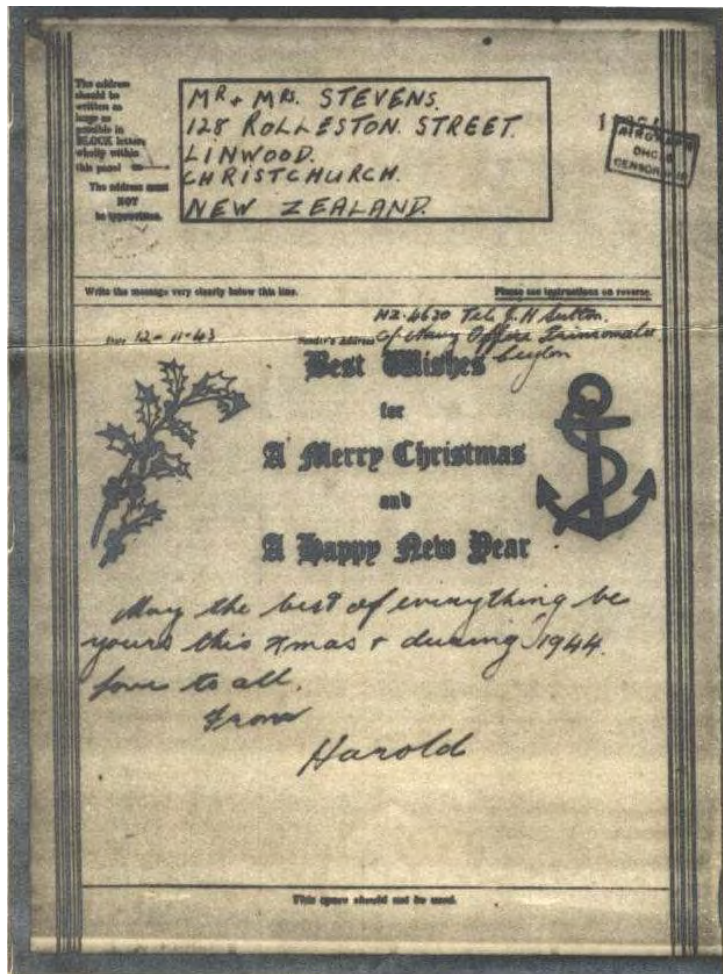 The address
should be
written as
large as
possible in
BLOCK letters
wholly within
this panel
The address must
NOT
be typewritten.
MR + MRS. STEVENS.
128 ROLLESTON. STREET.
LINWOOD.
CHRISTCHURCH.
NEW ZEALAND.
AIRGRAPH
CENSORSHIP
Write the message very clearly below this line.
Please see instructions on reverse.
Date 12-11-43
Sender's Address
NZ. 4620 Tel. J. H Sutton.
C/- Navy Office Trincomalee.
Ceylon
Best Wishes
for
A Merry Christmas
and
A Happy New Year
May the best of everything be
yours this Xmas + during 1944.
Love to all.
From
Harold
This space should not be used.